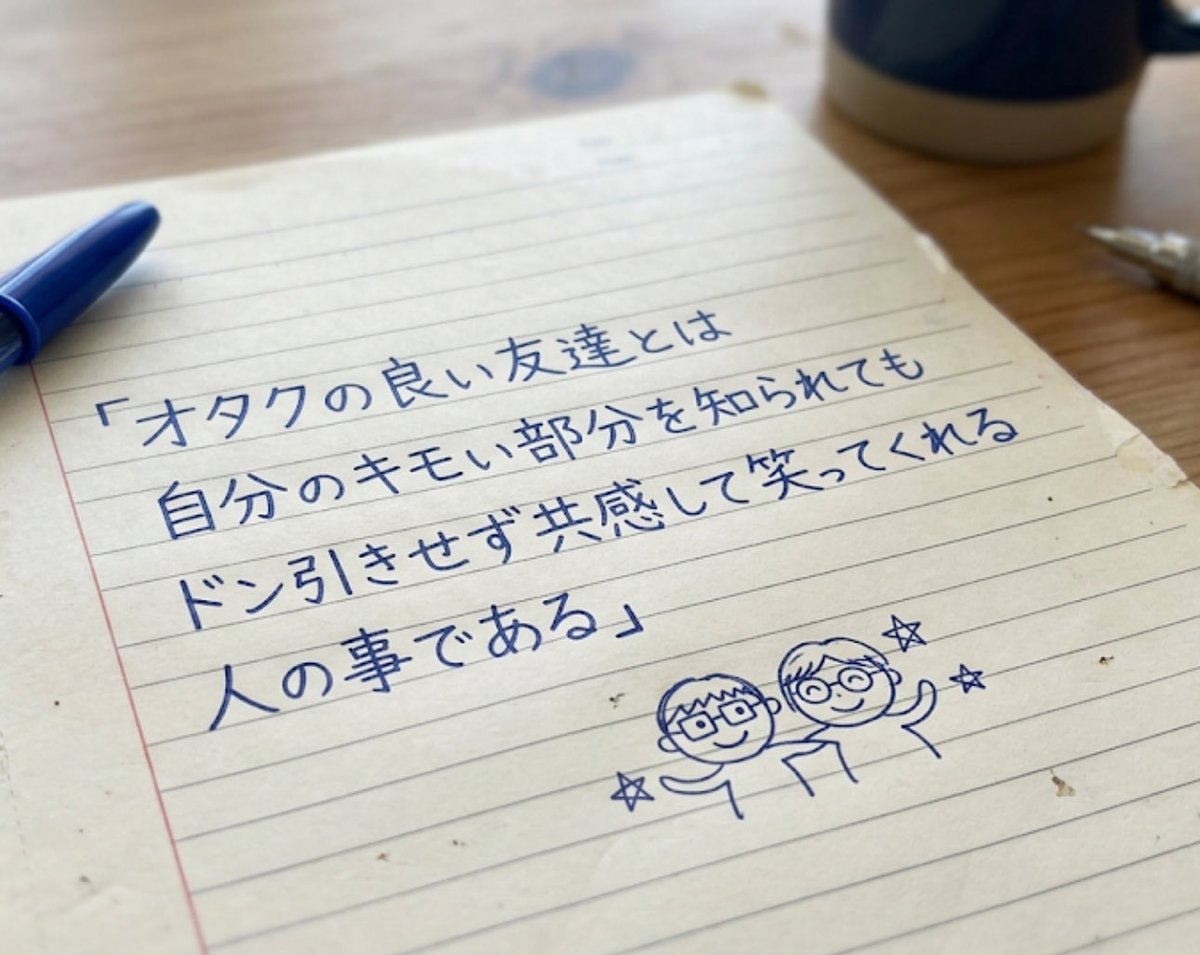 「オタクの良い友達とは
自分のキモい部分を知られても
ドン引きせず共感して笑ってくれる
人の事である」